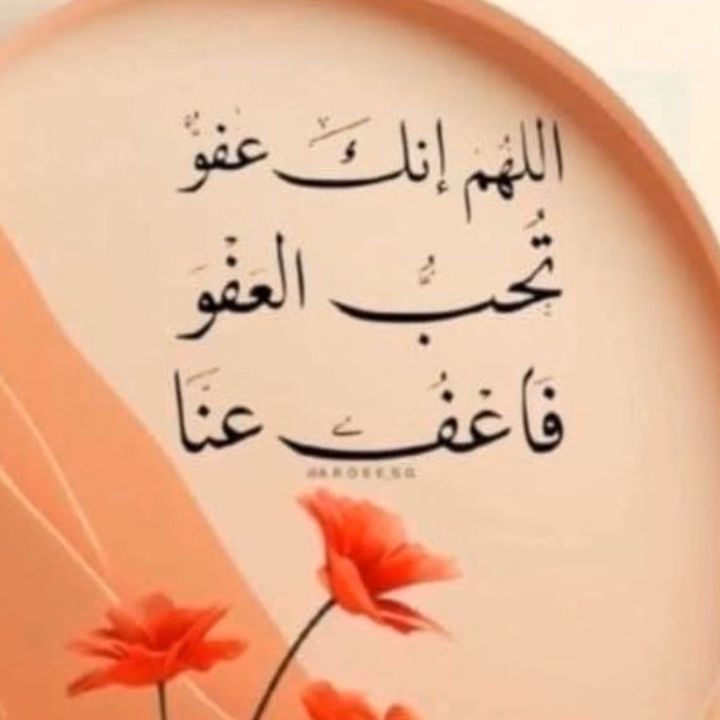 اللهُم إنكَ عفوٌّ
تُحِبُّ العَفْوَ
فَاعْفُ عنَّا
@AROSEESG